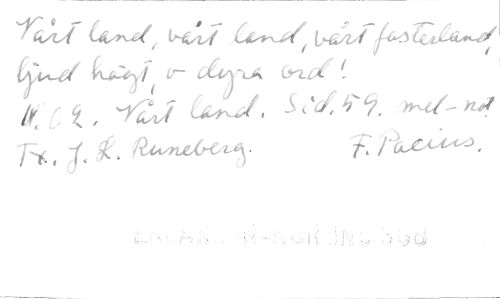 Vårt land, vårt land, vårt fosterland,
ljud högt, o dyra ord!
N. 62. Vårt land. Sid. 59. mel-not.
Tx. J. L. Runeberg. F. Pacius.